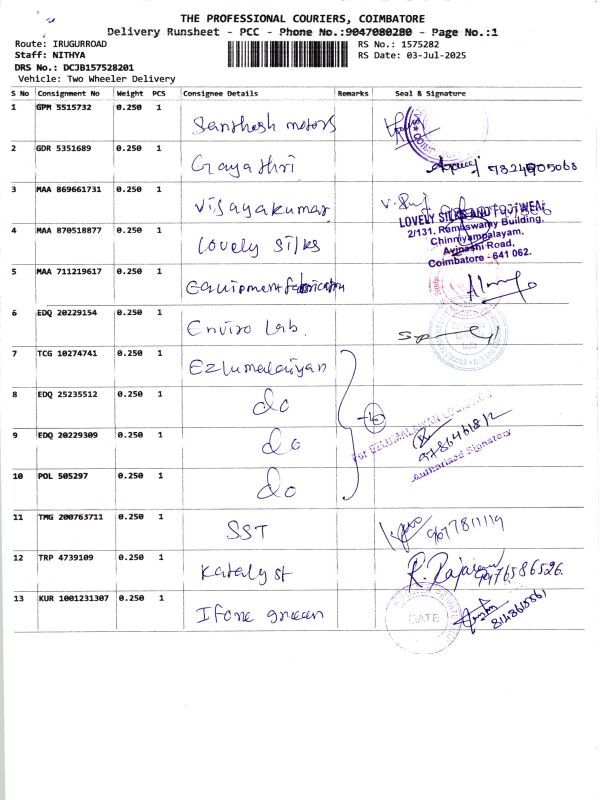 THE PROFESSIONAL COURIERS, COIMBATORE
Delivery Runsheet - PCC - Phone No.:9047080280 - Page No.:1
Route: IRUGURROAD
RS No.: 1575282
Staff: NITHYA
RS Date: 03-Jul-2025
DRS No.: DCJB157528201
Vehicle: Two Wheeler Delivery
S No Consignment No Weight PCS Consignee Details Remarks Seal & Signature
1 GPM 5515732 0.250 1 Santhosh motors
2 GDR 5351689 0.250 1 Gayathri
3 MAA 869661731 0.250 1 Vijayakumar
4 MAA 870518877 0.250 1 Lovely Silks
LOVELY SILKS AND
2/131, Ramaswamy Building,
Chinniyampalayam,
Avinashi Road,
Coimbatore - 641 062.
5 MAA 711219617 0.250 1 Equipment fabrication
6 EDQ 20229154 0.250 1 Enviro Lab.
7 TCG 10274741 0.250 1 Ezlumalaiyan
8 EDQ 25235512 0.250 1 do
9 EDQ 20229309 0.250 1 do
Authorised Signatory
10 POL 505297 0.250 1 do
11 TMG 200763711 0.250 1 SST 9677811119
12 TRP 4739109 0.250 1 Katalyst R. Rajaram 9976586526.
13 KUR 1001231307 0.250 1 Ifone green
GATE